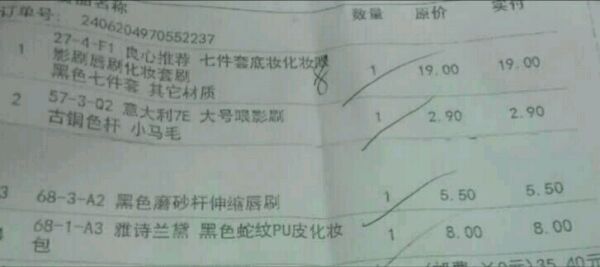 商品名称 数量 原价 实付
订单号: 2406204970552237
1 27-4-F1 良心推荐 七件套底妆化妆眼 1 19.00 19.00
影刷唇刷化妆套刷
黑色七件套 其它材质
2 57-3-Q2 意大利7E 大号喂影刷 1 2.90 2.90
古铜色杆 小马毛
3 68-3-A2 黑色磨砂杆伸缩唇刷 1 5.50 5.50
4 68-1-A3 雅诗兰黛 黑色蛇纹PU皮化妆 1 8.00 8.00
包
35.40元